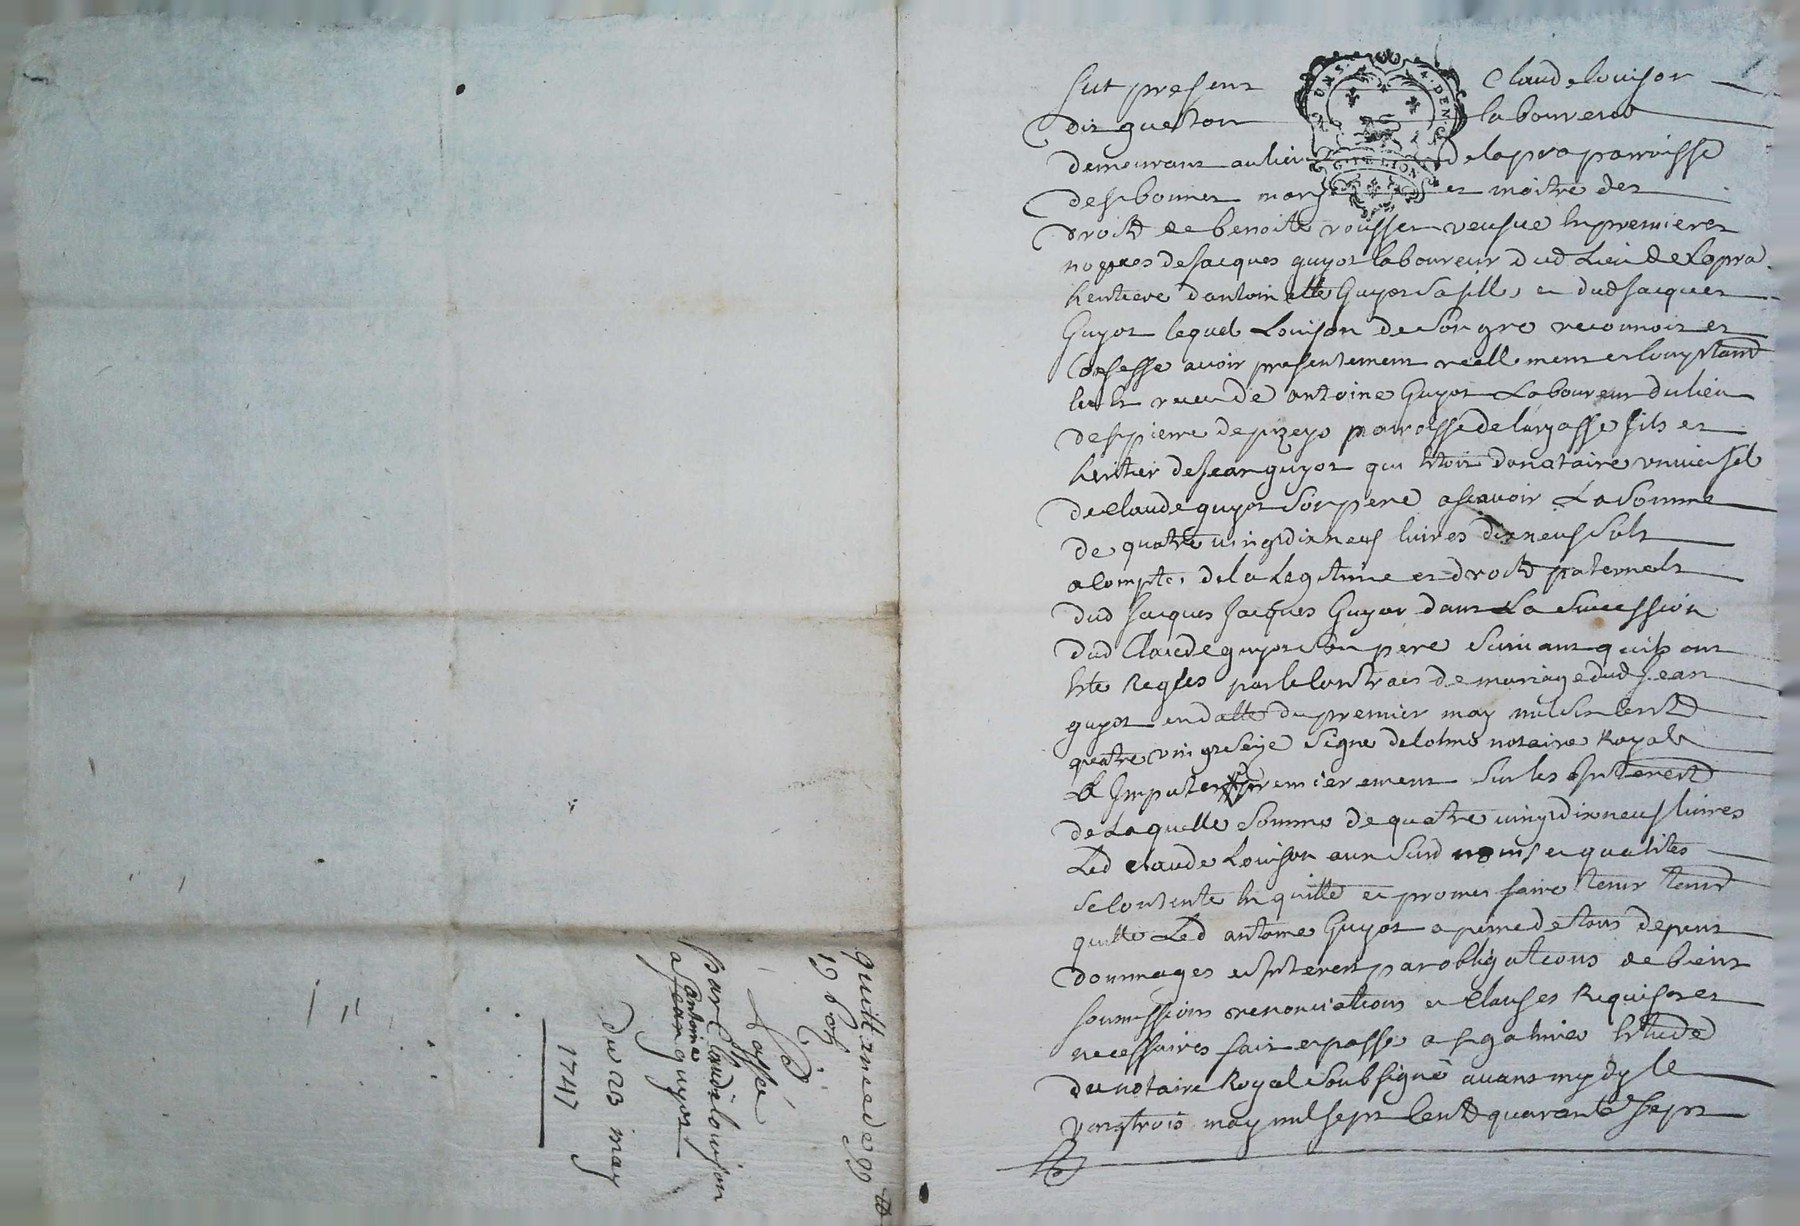 fut present Claude louison
dit gueton laboureur
demeurant au lieu de lapra parroisse
de st bonnet et maitre des
droitz de benoite rousset veufve en premieres
nopces de Jacques guyot laboureur dud Lieu de Lapra
heritiere dantoinette Guyot sa fille et dud Jacques
Guyot lequel Louison de son gre reconnoit et
Confesse avoir presentement reellement et Comptant
heu et receu de antoine Guyot Laboureur du lieu
de parroisse de fils et
heritier de Jean guyot qui Etoit donataire universel
de Claude guyot son pere ascavoir La Somme
de quatre vingt dix neuf livres dix neuf sols
a Compte de la Legitime et droitz paternels
dud Jacques Jacques Guyot dans La Succession
dud Claude guyot son pere Suivant quils ont
Ete Regles par le Contract de mariage dud Jean
guyot en datte du premier may mil six Centz
quatre vingt seize Signe delolme notaire Royal
A Imputer premierement Sur les Interestz
de Laquelle Somme de quatre vingt dix neuf livres
Led Claude Louison aux susd noms et qualites
se Contente En quitte et promet faire tenir
quitte Led antoine Guyot a peine de tous depens
dommages et Interest par obligations de biens
soumissions renonciations et Clauses Requises et
necessaires fait et passe a st galmier Etude
du notaire Royal Soubsigne avant mydy le
vingt trois may mil sept Centz quarante sept
quittance de 99 lt
19 sols
passee
Par Claude louison
antoine
a Jean guyot
Du 23 may
1747